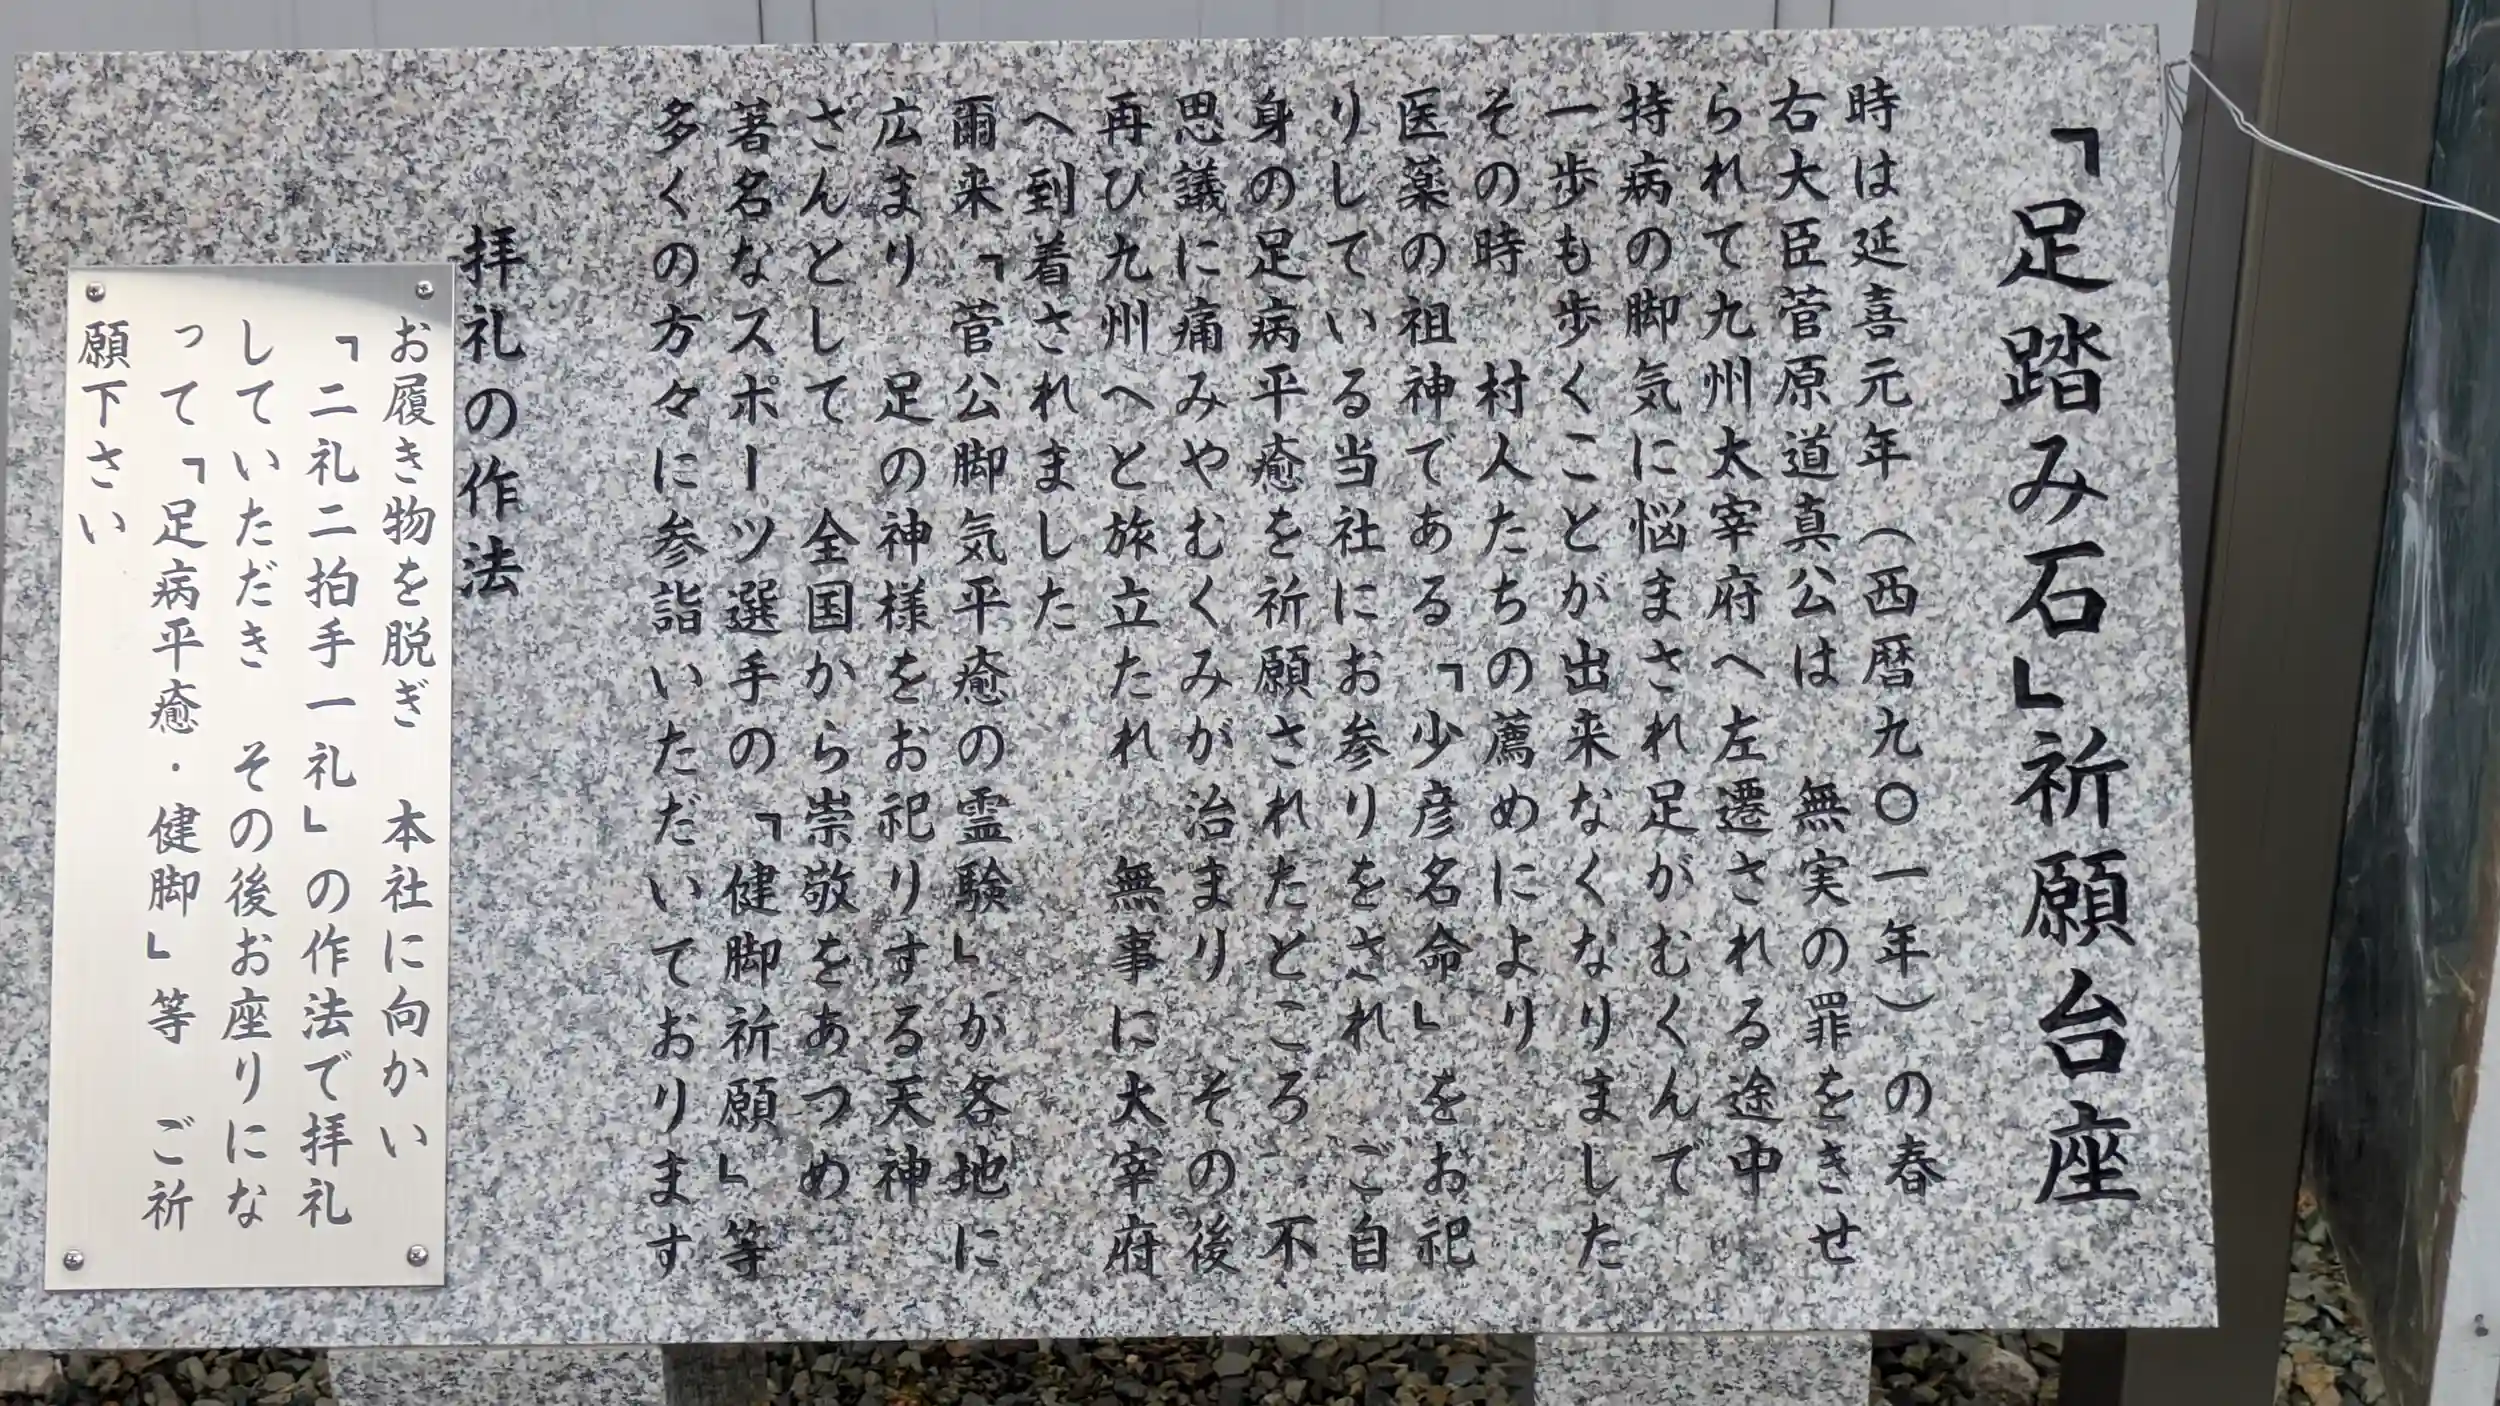 「足踏み石」祈願台座
時は延喜元年（西暦九〇一年）の春
右大臣菅原道真公は　無実の罪をきせ
られて九州太宰府へ左遷される途中
持病の脚気に悩まされ足がむくんで
一歩も歩くことが出来なくなりました
その時　村人たちの薦めにより
医薬の祖神である「少彦名命」をお祀
りしている当社にお参りをされ　ご自
身の足病平癒を祈願されたところ　不
思議に痛みやむくみが治まり　その後
再び九州へと旅立たれ　無事に大宰府
へ到着されました
爾来「菅公脚気平癒の霊験」が各地に
広まり　足の神様をお祀りする天神
さんとして　全国から崇敬をあつめ
著名なスポーツ選手の「健脚祈願」等
多くの方々に参詣いただいております
拝礼の作法
お履き物を脱ぎ　本社に向かい
「二礼二拍手一礼」の作法で拝礼
していただき　その後お座りにな
って「足病平癒・健脚」等　ご祈
願下さい